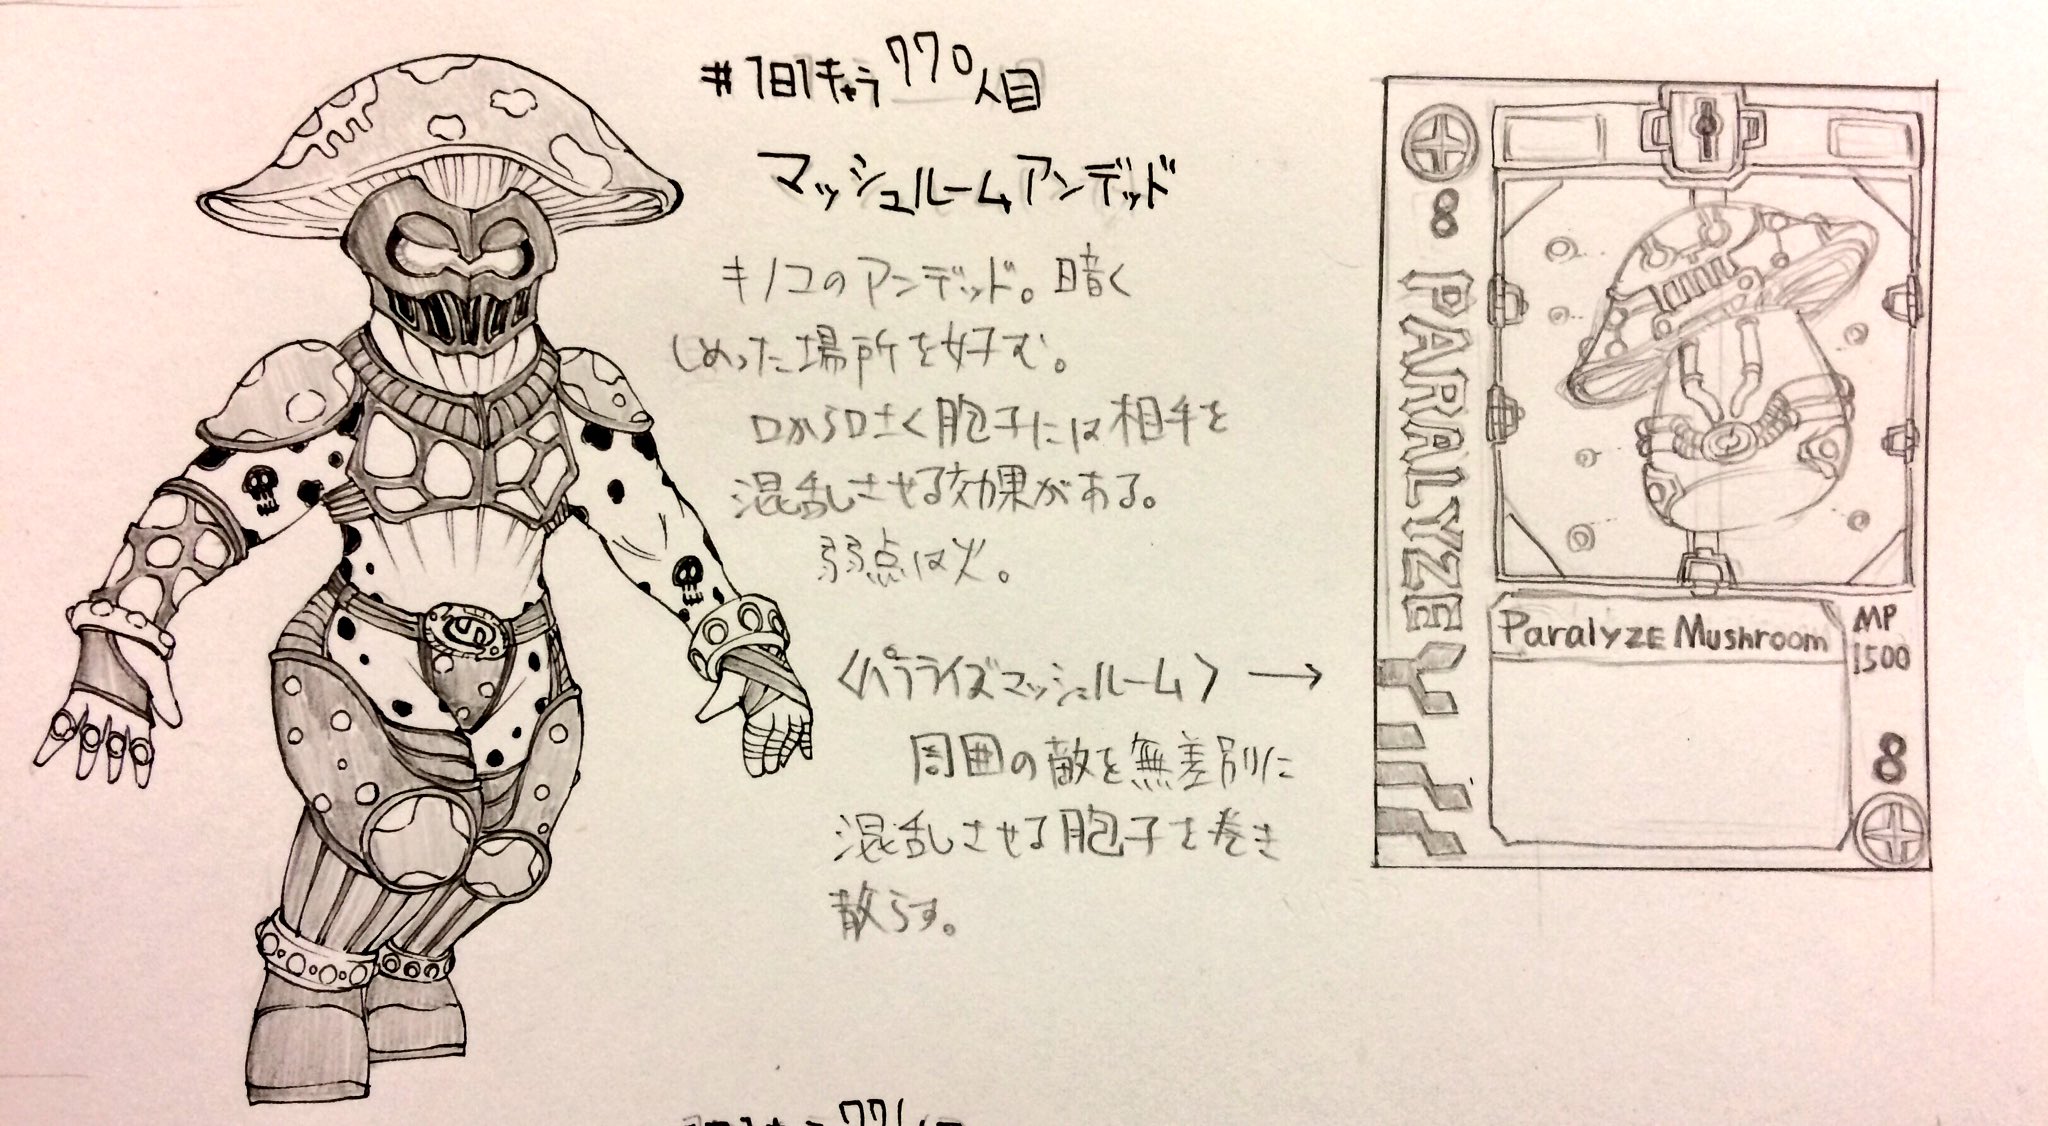 #1日1キャラ770人目
マッシュルームアンデッド
キノコのアンデッド。暗く
しめった場所を好む。
口から吐く胞子には相手を
混乱させる効果がある。
弱点は火。
〈パラライズマッシュルーム〉→
周囲の敵を無差別に
混乱させる胞子を巻き
散らす。
8
PARALYZE
Paralyze Mushroom
MP
1500
8